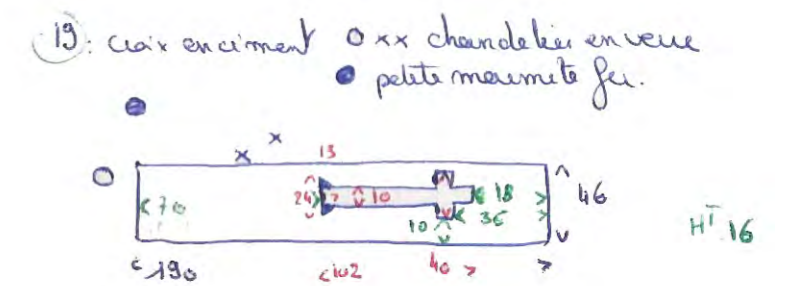 19: croix en ciment O xx chandelier en verre
petite marmite fer.
13
70 24 10 18 46
10 36 HT 16
190 102 40